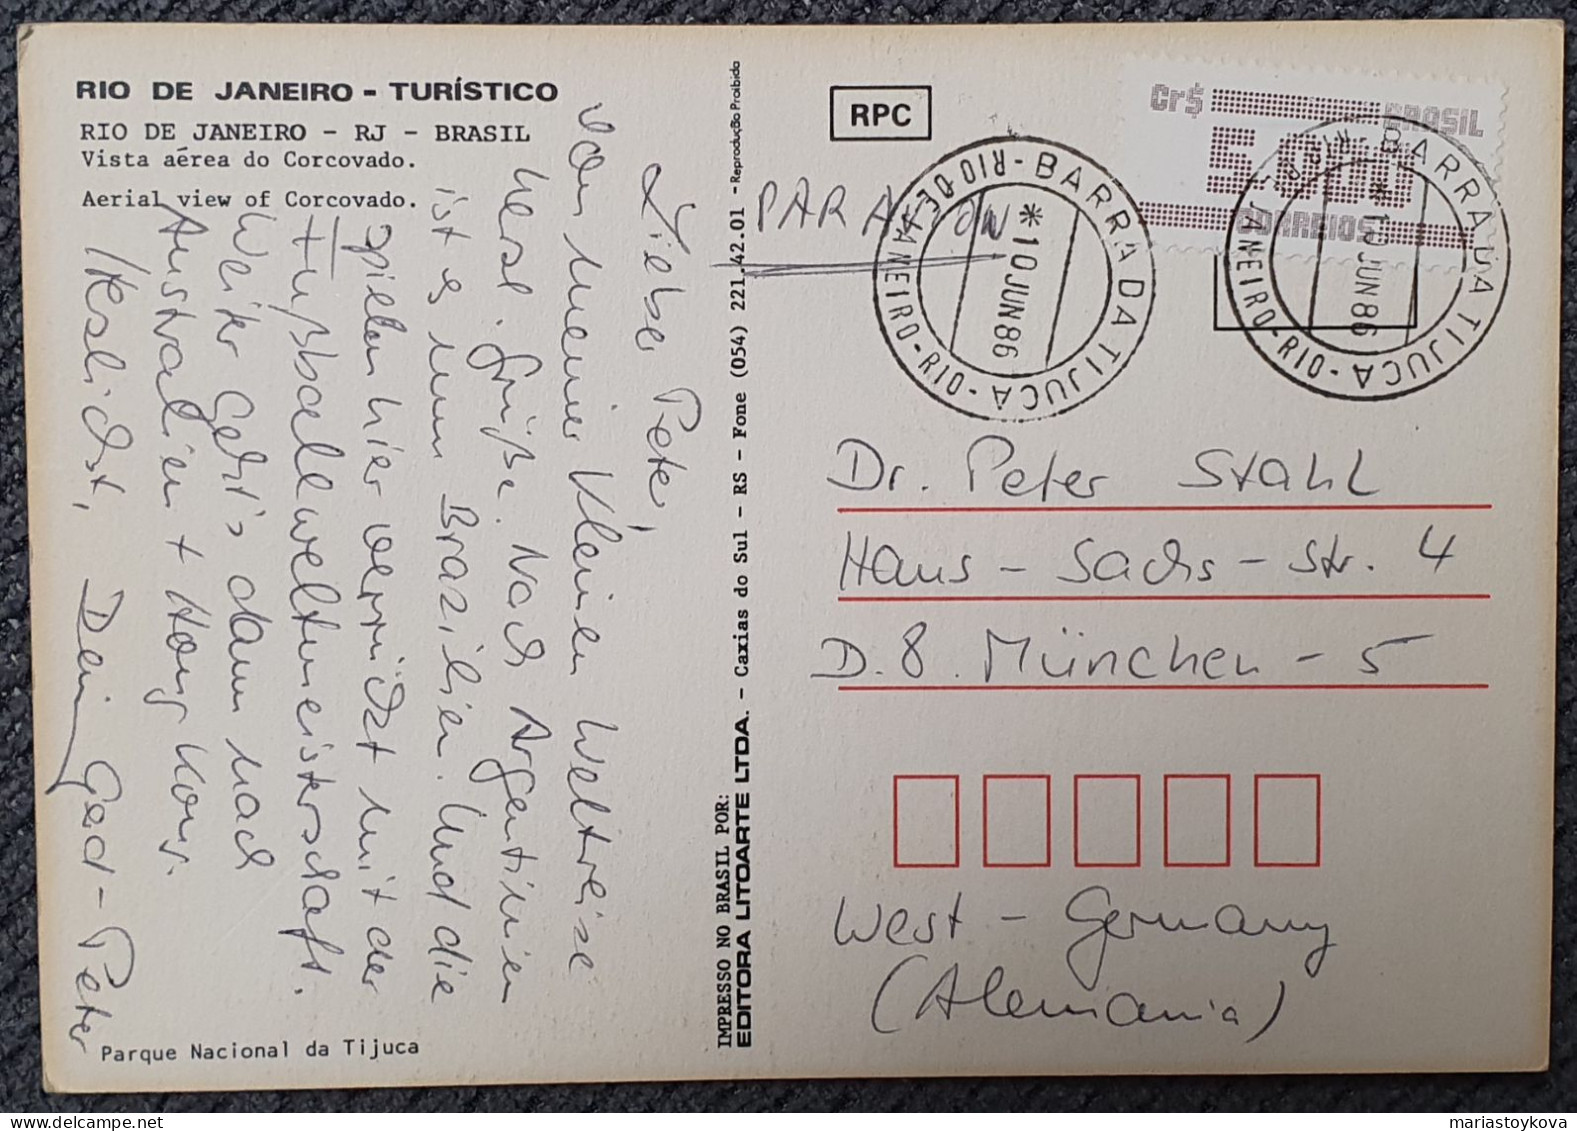 RIO DE JANEIRO - TURÍSTICO
RIO DE JANEIRO - RJ - BRASIL
Vista aérea do Corcovado.
Aerial view of Corcovado.
Lieber Peter,
von meiner kleinen Weltreise
herzl. Grüße. Nach Argentinien
ist es nun Brazilien. Und die
spielen hier verrückt mit der
Fußballweltmeisterschaft.
Weiter geht's dann nach
Australien + Hong Kong.
Herzlichst, Dein Gerd-Peter
Parque Nacional da Tijuca
IMPRESSO NO BRASIL POR:
EDITORA LITOARTE LTDA. - Caxias do Sul - RS - Fone (054) 221.42.01 - Reprodução Proibida
RPC
PAR AVION
BARRA DA TIJUCA - RIO - RIO DE JANEIRO
*10 JUN 86
Cr$ BRASIL
5.000
CORREIOS
BARRA DA TIJUCA - RIO - RIO DE JANEIRO
*10 JUN 86
Dr. Peter Stahl
Hans-Sachs-Str. 4
D.8. München-5
West-Germany
(Alemania)
mariastoykova